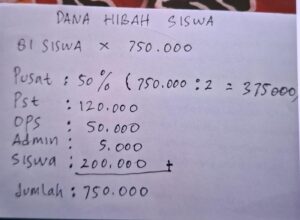 DANA HIBAH SISWA
81 SISWA X 750.000
Pusat : 50% (750.000 : 2 = 375000,
Pst : 120.000
OPS : 50.000
Admin : 5.000
Siswa : 200.000 +
Jumlah : 750.000